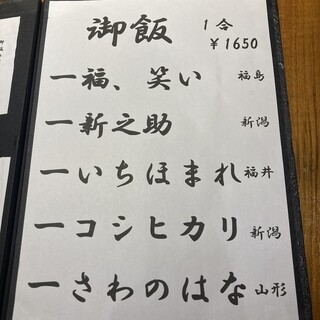 御飯 1合
¥1650
一福、笑い 福島
一新之助 新潟
一いちほまれ 福井
一コシヒカリ 新潟
一さわのはな 山形